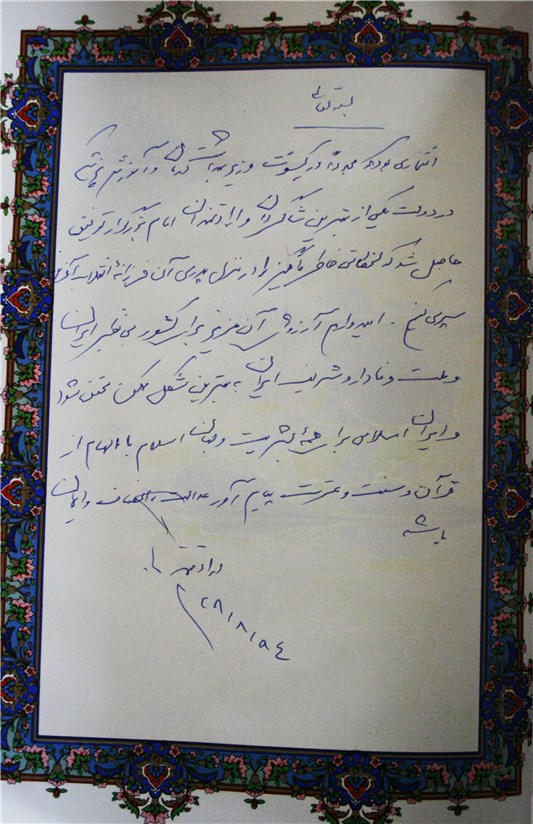 بسمه تعالی
افتخاری بود که مجدداً در کسوت وزیر بهداشت درمان و آموزش پزشکی
در دولت یکی از بهترین شاگردان و ارادتمندان امام بزرگوار توفیق
حاصل شد که لحظاتی خاطره‌انگیز را در منزل پدری آن فرزانهٔ انقلاب آفرین
سپری کنیم. امیدوارم آرزوهای آن عزیز برای کشور بی نظیر ایران
و ملت وفادار و شریف ایران به بهترین شکل ممکن محقق شود
و ایران اسلامی برای همهٔ بشریت و جهان اسلام با الهام از
قرآن و سنت و عترت پیام آور عدالت، انصاف و ایمان
باشد
ارادتمند